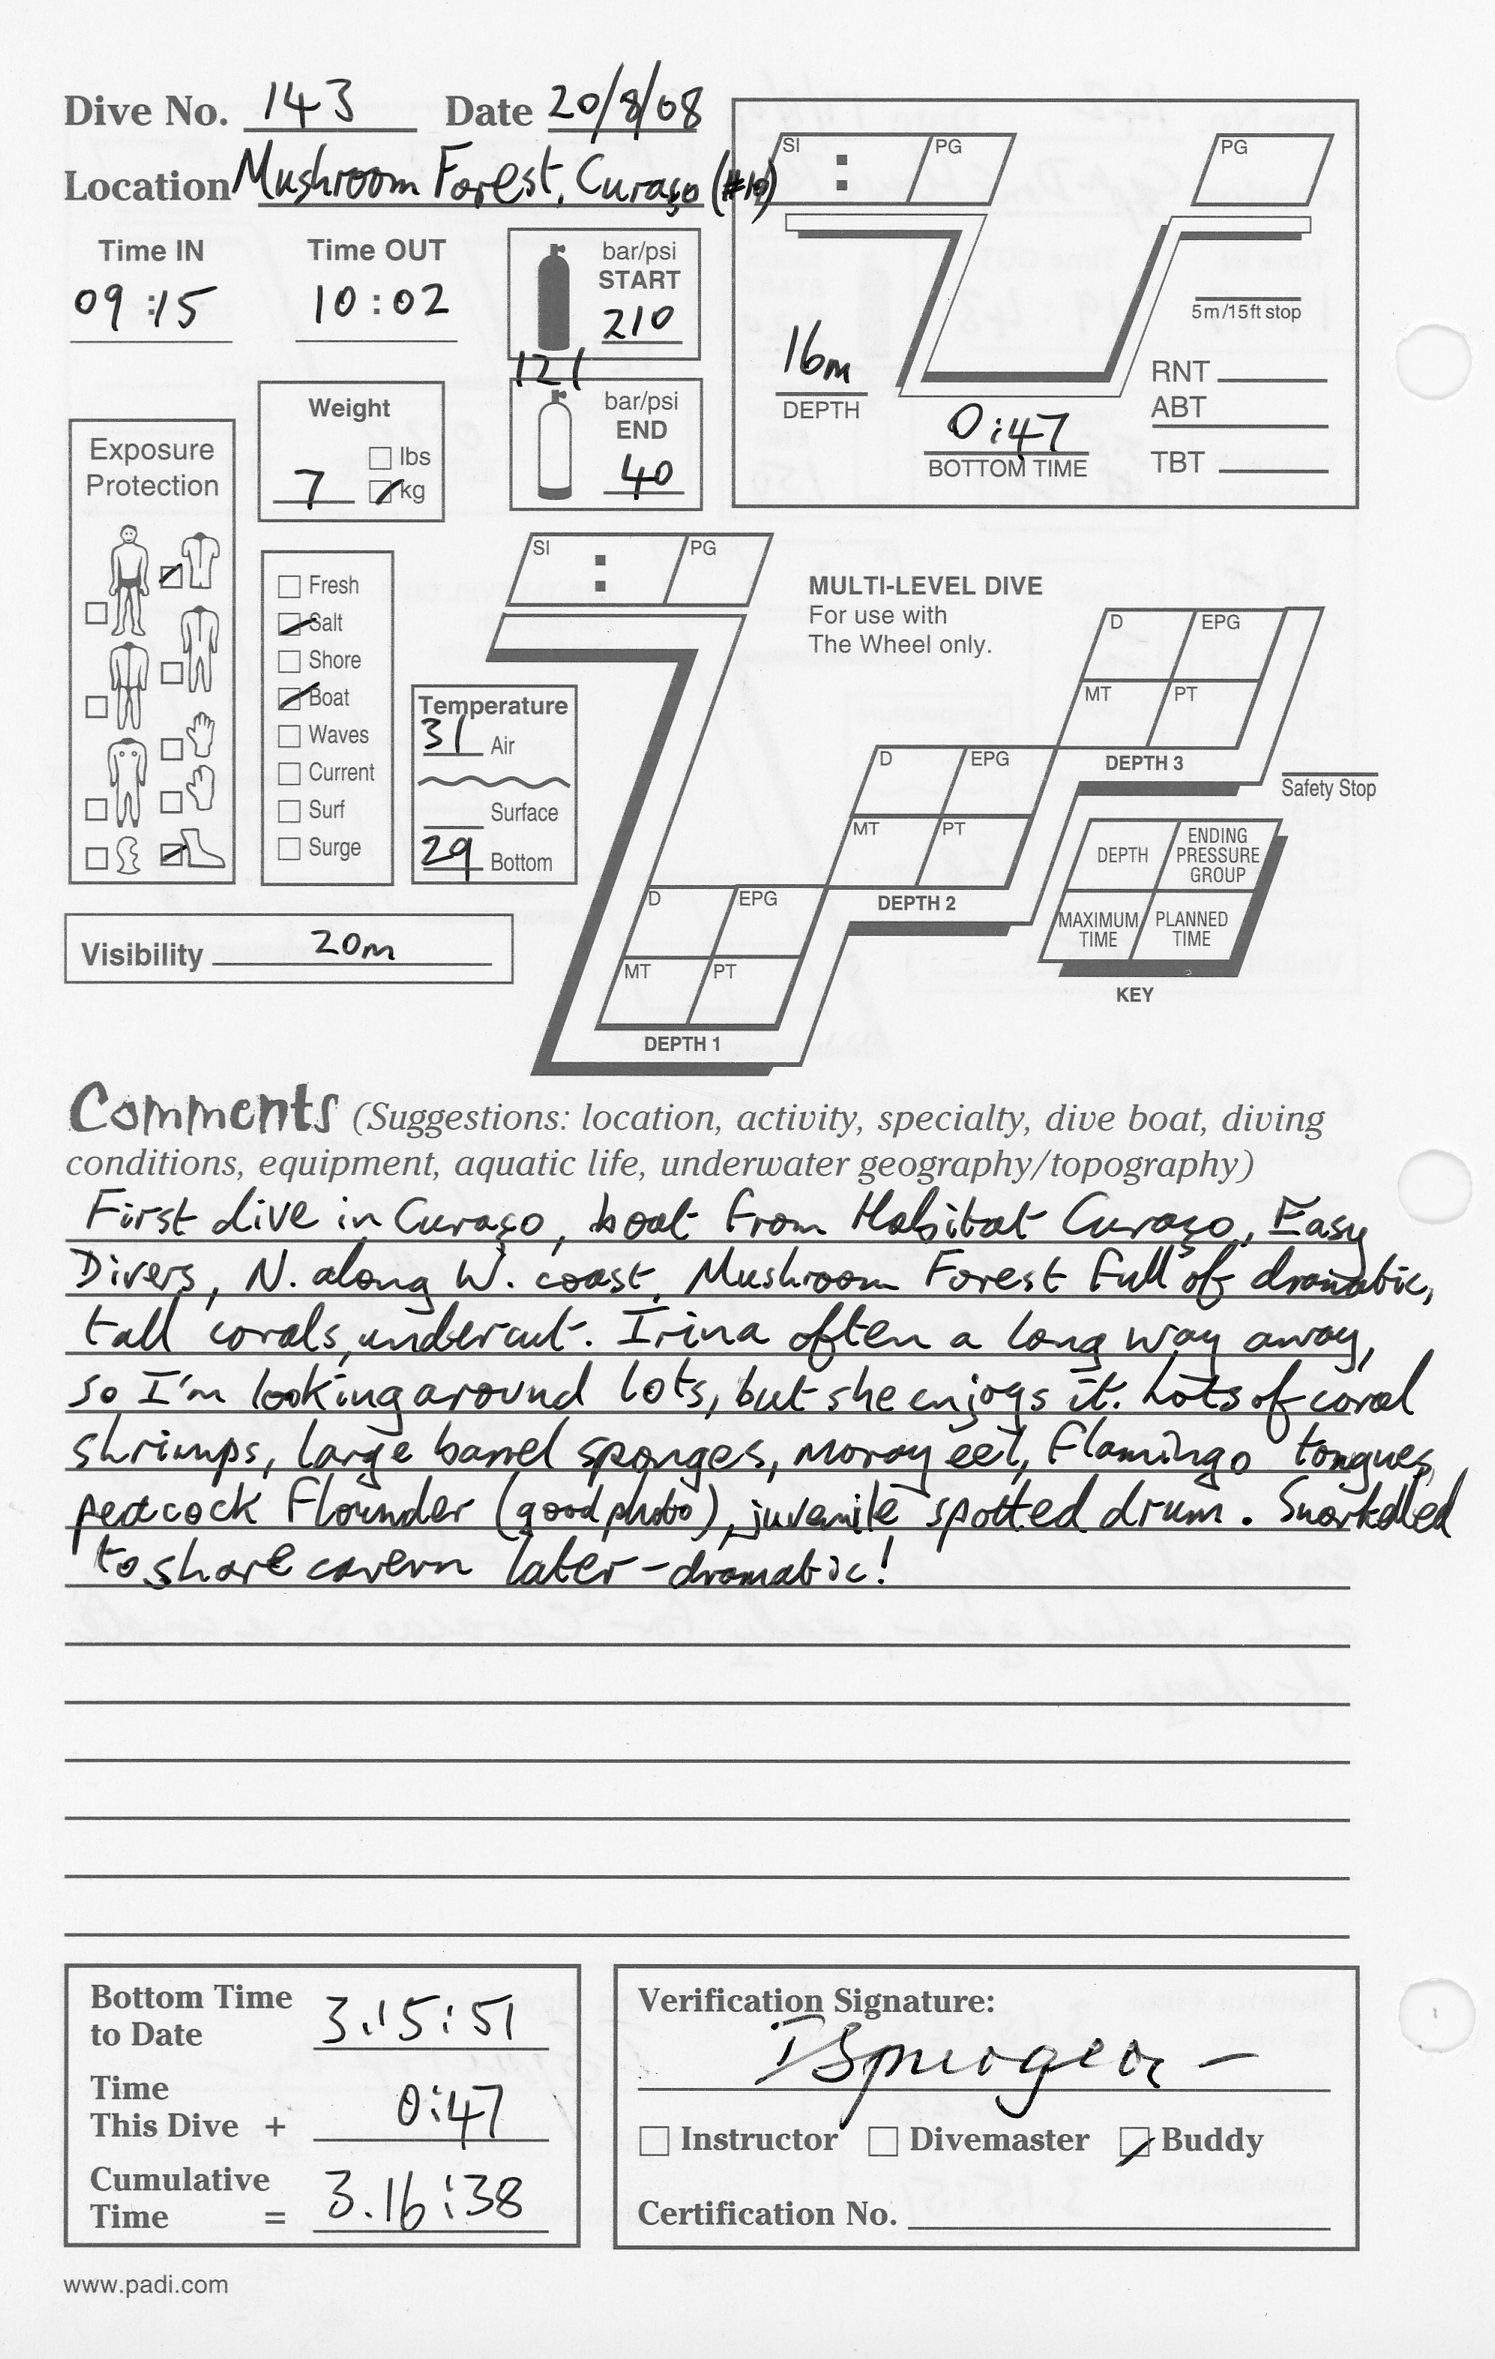 Dive No. 143 Date 20/8/08
Location Mushroom Forest, Curaço (#10)
Time IN Time OUT
09:15 10:02
bar/psi
START
210
121
bar/psi
END
40
Weight
lbs
7 kg
SI : PG
PG
16m
DEPTH
0:47
BOTTOM TIME
5m/15ft stop
RNT
ABT
TBT
Exposure
Protection
Fresh
Salt
Shore
Boat
Waves
Current
Surf
Surge
Temperature
31 Air
Surface
29 Bottom
Visibility 20m
SI : PG
MULTI-LEVEL DIVE
For use with
The Wheel only.
D EPG
MT PT
DEPTH 3
D EPG
MT PT
DEPTH 2
D EPG
MT PT
DEPTH 1
Safety Stop
DEPTH
ENDING
PRESSURE
GROUP
MAXIMUM
TIME
PLANNED
TIME
KEY
Comments (Suggestions: location, activity, specialty, dive boat, diving
conditions, equipment, aquatic life, underwater geography/topography)
First dive in Curaço, boat from Habitat Curaço, Easy
Divers, N. along W. coast. Mushroom Forest full of dramatic,
tall corals, undercut. Irina often a long way away,
so I'm looking around lots, but she enjoys it. Lots of coral
shrimps, large barrel sponges, moray eel, flamingo tongues,
peacock flounder (good photo), juvenile spotted drum. Snorkelled
to shore cavern later - dramatic!
Bottom Time
to Date 3.15:51
Time
This Dive + 0:47
Cumulative
Time = 3.16:38
Verification Signature:
ISpurgeon
Instructor Divemaster Buddy
Certification No.
www.padi.com